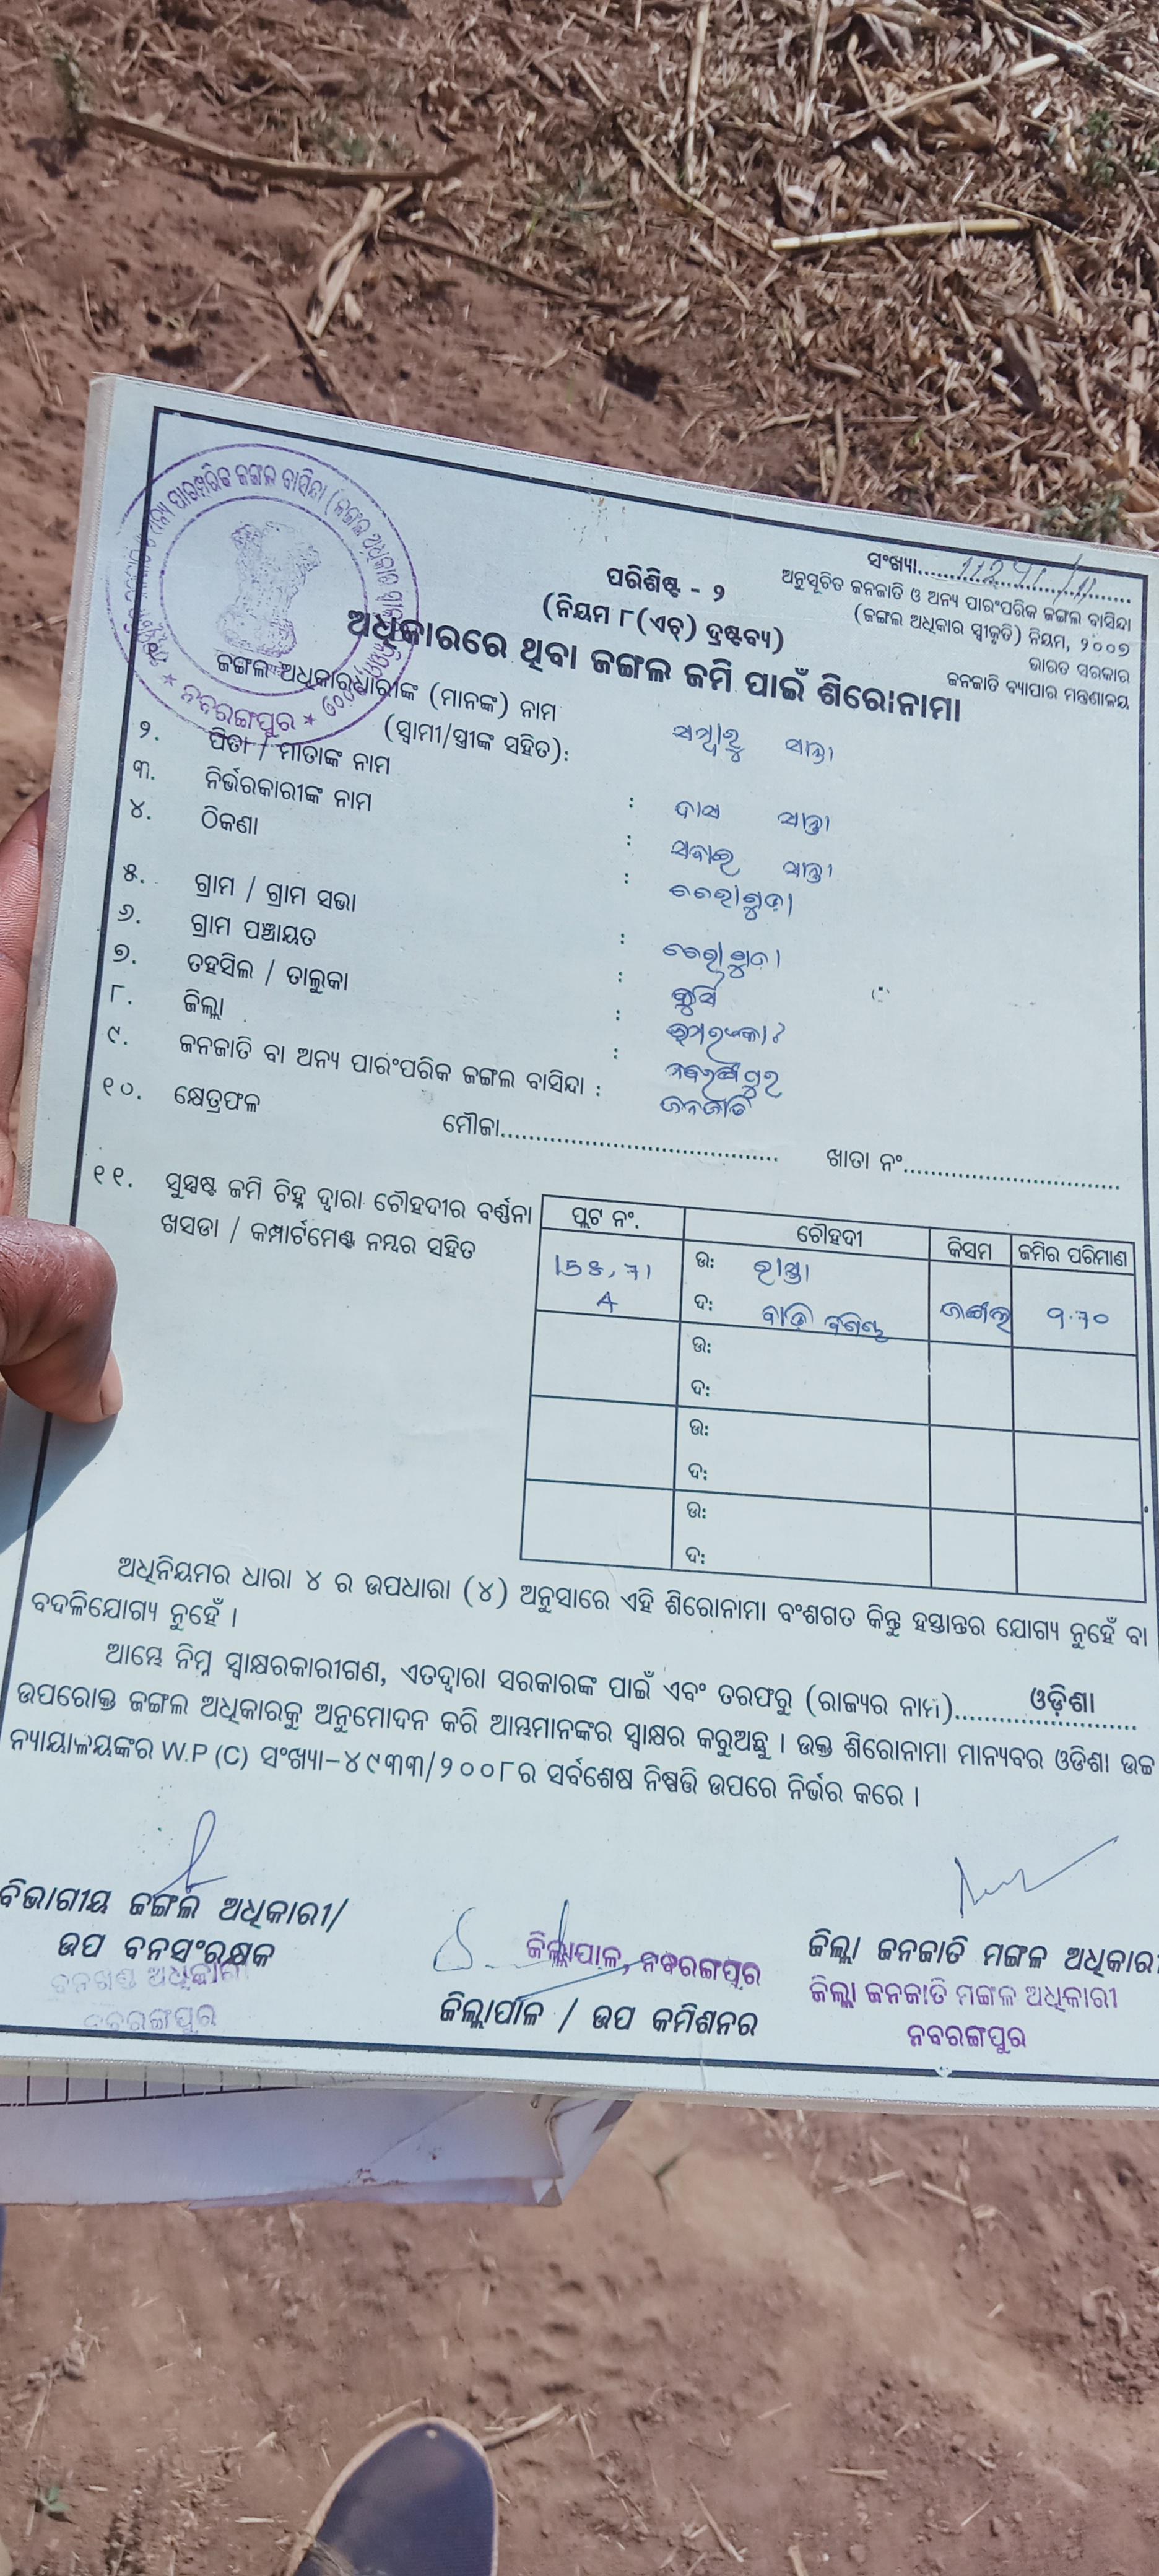 ସଂଖ୍ୟା
ଅନୁସୂଚିତ ଜନଜାତି ଓ ଅନ୍ୟ ପାରଂପରିକ ଜଙ୍ଗଲ ବାସିନ୍ଦା
(ଜଙ୍ଗଲ ଅଧିକାର ସ୍ୱୀକୃତି) ନିୟମ, ୨୦୦୭
ଭାରତ ସରକାର
ଜନଜାତି ବ୍ୟାପାର ମନ୍ତ୍ରଣାଳୟ
ପରିଶିଷ୍ଟ - ୨
(ନିୟମ ୮(ଏଚ୍) ଦ୍ରଷ୍ଟବ୍ୟ)
ଅଧିକାରରେ ଥିବା ଜଙ୍ଗଲ ଜମି ପାଇଁ ଶିରୋନାମା
ନବରଙ୍ଗପୁର
ଜଙ୍ଗଲ ଅଧିକାରଧାରୀଙ୍କ (ମାନଙ୍କ) ନାମ
(ସ୍ୱାମୀ/ସ୍ତ୍ରୀଙ୍କ ସହିତ):
୨. ପିତା / ମାତାଙ୍କ ନାମ : ଦାସ
୩. ନିର୍ଭରକାରୀଙ୍କ ନାମ :
୪. ଠିକଣା :
୫. ଗ୍ରାମ / ଗ୍ରାମ ସଭା :
୬. ଗ୍ରାମ ପଞ୍ଚାୟତ :
୭. ତହସିଲ / ତାଲୁକା :
୮. ଜିଲ୍ଲା : ନବରଙ୍ଗପୁର
୯. ଜନଜାତି ବା ଅନ୍ୟ ପାରଂପରିକ ଜଙ୍ଗଲ ବାସିନ୍ଦା : ଜନଜାତି
୧୦. କ୍ଷେତ୍ରଫଳ
ମୌଜା........................................ ଖାତା ନଂ................................
୧୧. ସୁସ୍ପଷ୍ଟ ଜମି ଚିହ୍ନ ଦ୍ୱାରା ଚୌହଦୀର ବର୍ଣ୍ଣନା
ଖସଡା / କମ୍ପାର୍ଟମେଣ୍ଟ ନମ୍ବର ସହିତ
ପ୍ଲଟ ନଂ. ଚୌହଦୀ କିସମ ଜମିର ପରିମାଣ
ଉ: ରାସ୍ତା
A ଦ: ଜଙ୍ଗଲ
ଉ:
ଦ:
ଉ:
ଦ:
ଉ:
ଦ:
ଅଧିନିୟମର ଧାରା ୪ ର ଉପଧାରା (୪) ଅନୁସାରେ ଏହି ଶିରୋନାମା ବଂଶଗତ କିନ୍ତୁ ହସ୍ତାନ୍ତର ଯୋଗ୍ୟ ନୁହେଁ ବା
ବଦଳିଯୋଗ୍ୟ ନୁହେଁ ।
ଆମ୍ଭେ ନିମ୍ନ ସ୍ୱାକ୍ଷରକାରୀଗଣ, ଏତଦ୍ୱାରା ସରକାରଙ୍କ ପାଇଁ ଏବଂ ତରଫରୁ (ରାଜ୍ୟର ନାମ)......ଓଡ଼ିଶା......
ଉପରୋକ୍ତ ଜଙ୍ଗଲ ଅଧିକାରକୁ ଅନୁମୋଦନ କରି ଆମ୍ଭମାନଙ୍କର ସ୍ୱାକ୍ଷର କରୁଅଛୁ । ଉକ୍ତ ଶିରୋନାମା ମାନ୍ୟବର ଓଡିଶା ଉଚ୍ଚ
ନ୍ୟାୟାଳୟଙ୍କର W.P (C) ସଂଖ୍ୟା-୪୯୩୩/୨୦୦୮ର ସର୍ବଶେଷ ନିଷ୍ପତ୍ତି ଉପରେ ନିର୍ଭର କରେ ।
ବିଭାଗୀୟ ଜଙ୍ଗଲ ଅଧିକାରୀ/
ଉପ ବନସଂରକ୍ଷକ
ବନଖଣ୍ଡ ଅଧିକାରୀ
ନବରଙ୍ଗପୁର
ଜିଲ୍ଲାପାଳ, ନବରଙ୍ଗପୁର
ଜିଲ୍ଲାପାଳ / ଉପ କମିଶନର
ଜିଲ୍ଲା ଜନଜାତି ମଙ୍ଗଳ ଅଧିକାରୀ
ଜିଲ୍ଲା ଜନଜାତି ମଙ୍ଗଳ ଅଧିକାରୀ
ନବରଙ୍ଗପୁର